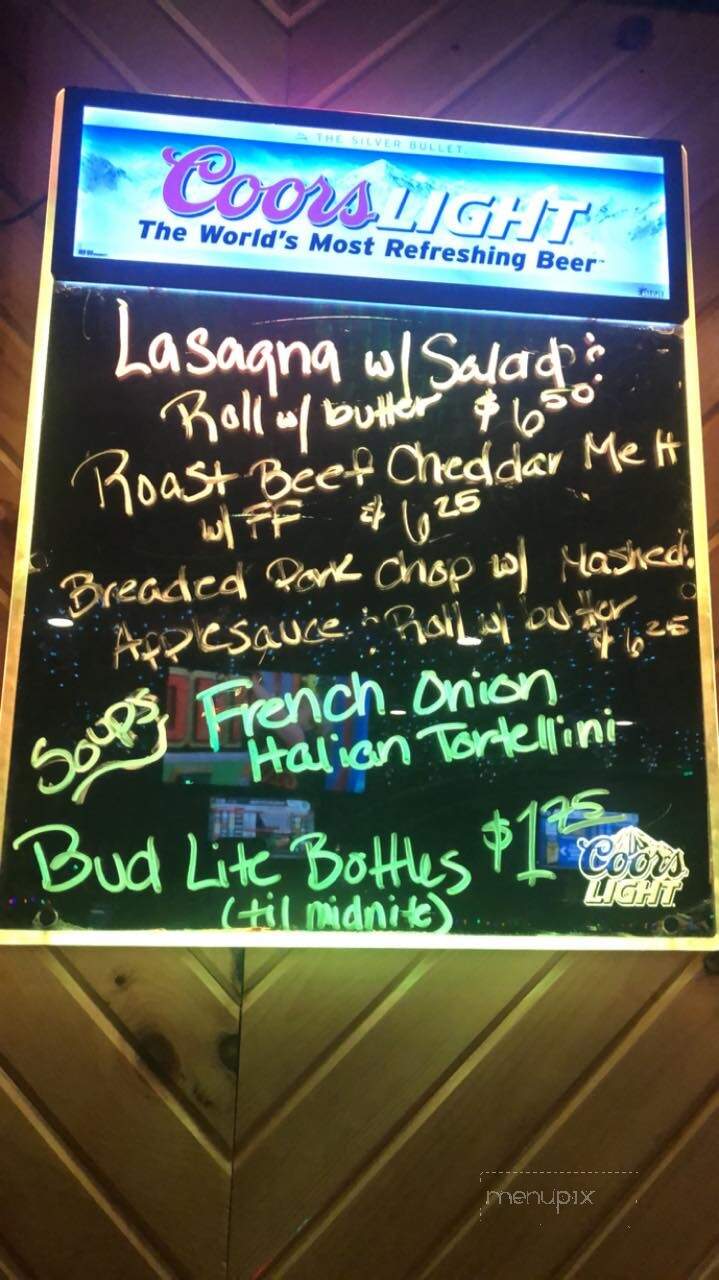 THE SILVER BULLET
Coors LIGHT
The World's Most Refreshing Beer
Lasagna w/ Salad &
Roll w/ butter $6.50
Roast Beef Cheddar Melt
w/ FF $6.25
Breaded Pork Chop w/ Mashed,
Applesauce & Roll w/ butter
$6.25
Soups French Onion
Italian Tortellini
Bud Lite Bottles $1.75
(til midnite)
Coors
LIGHT
menupix